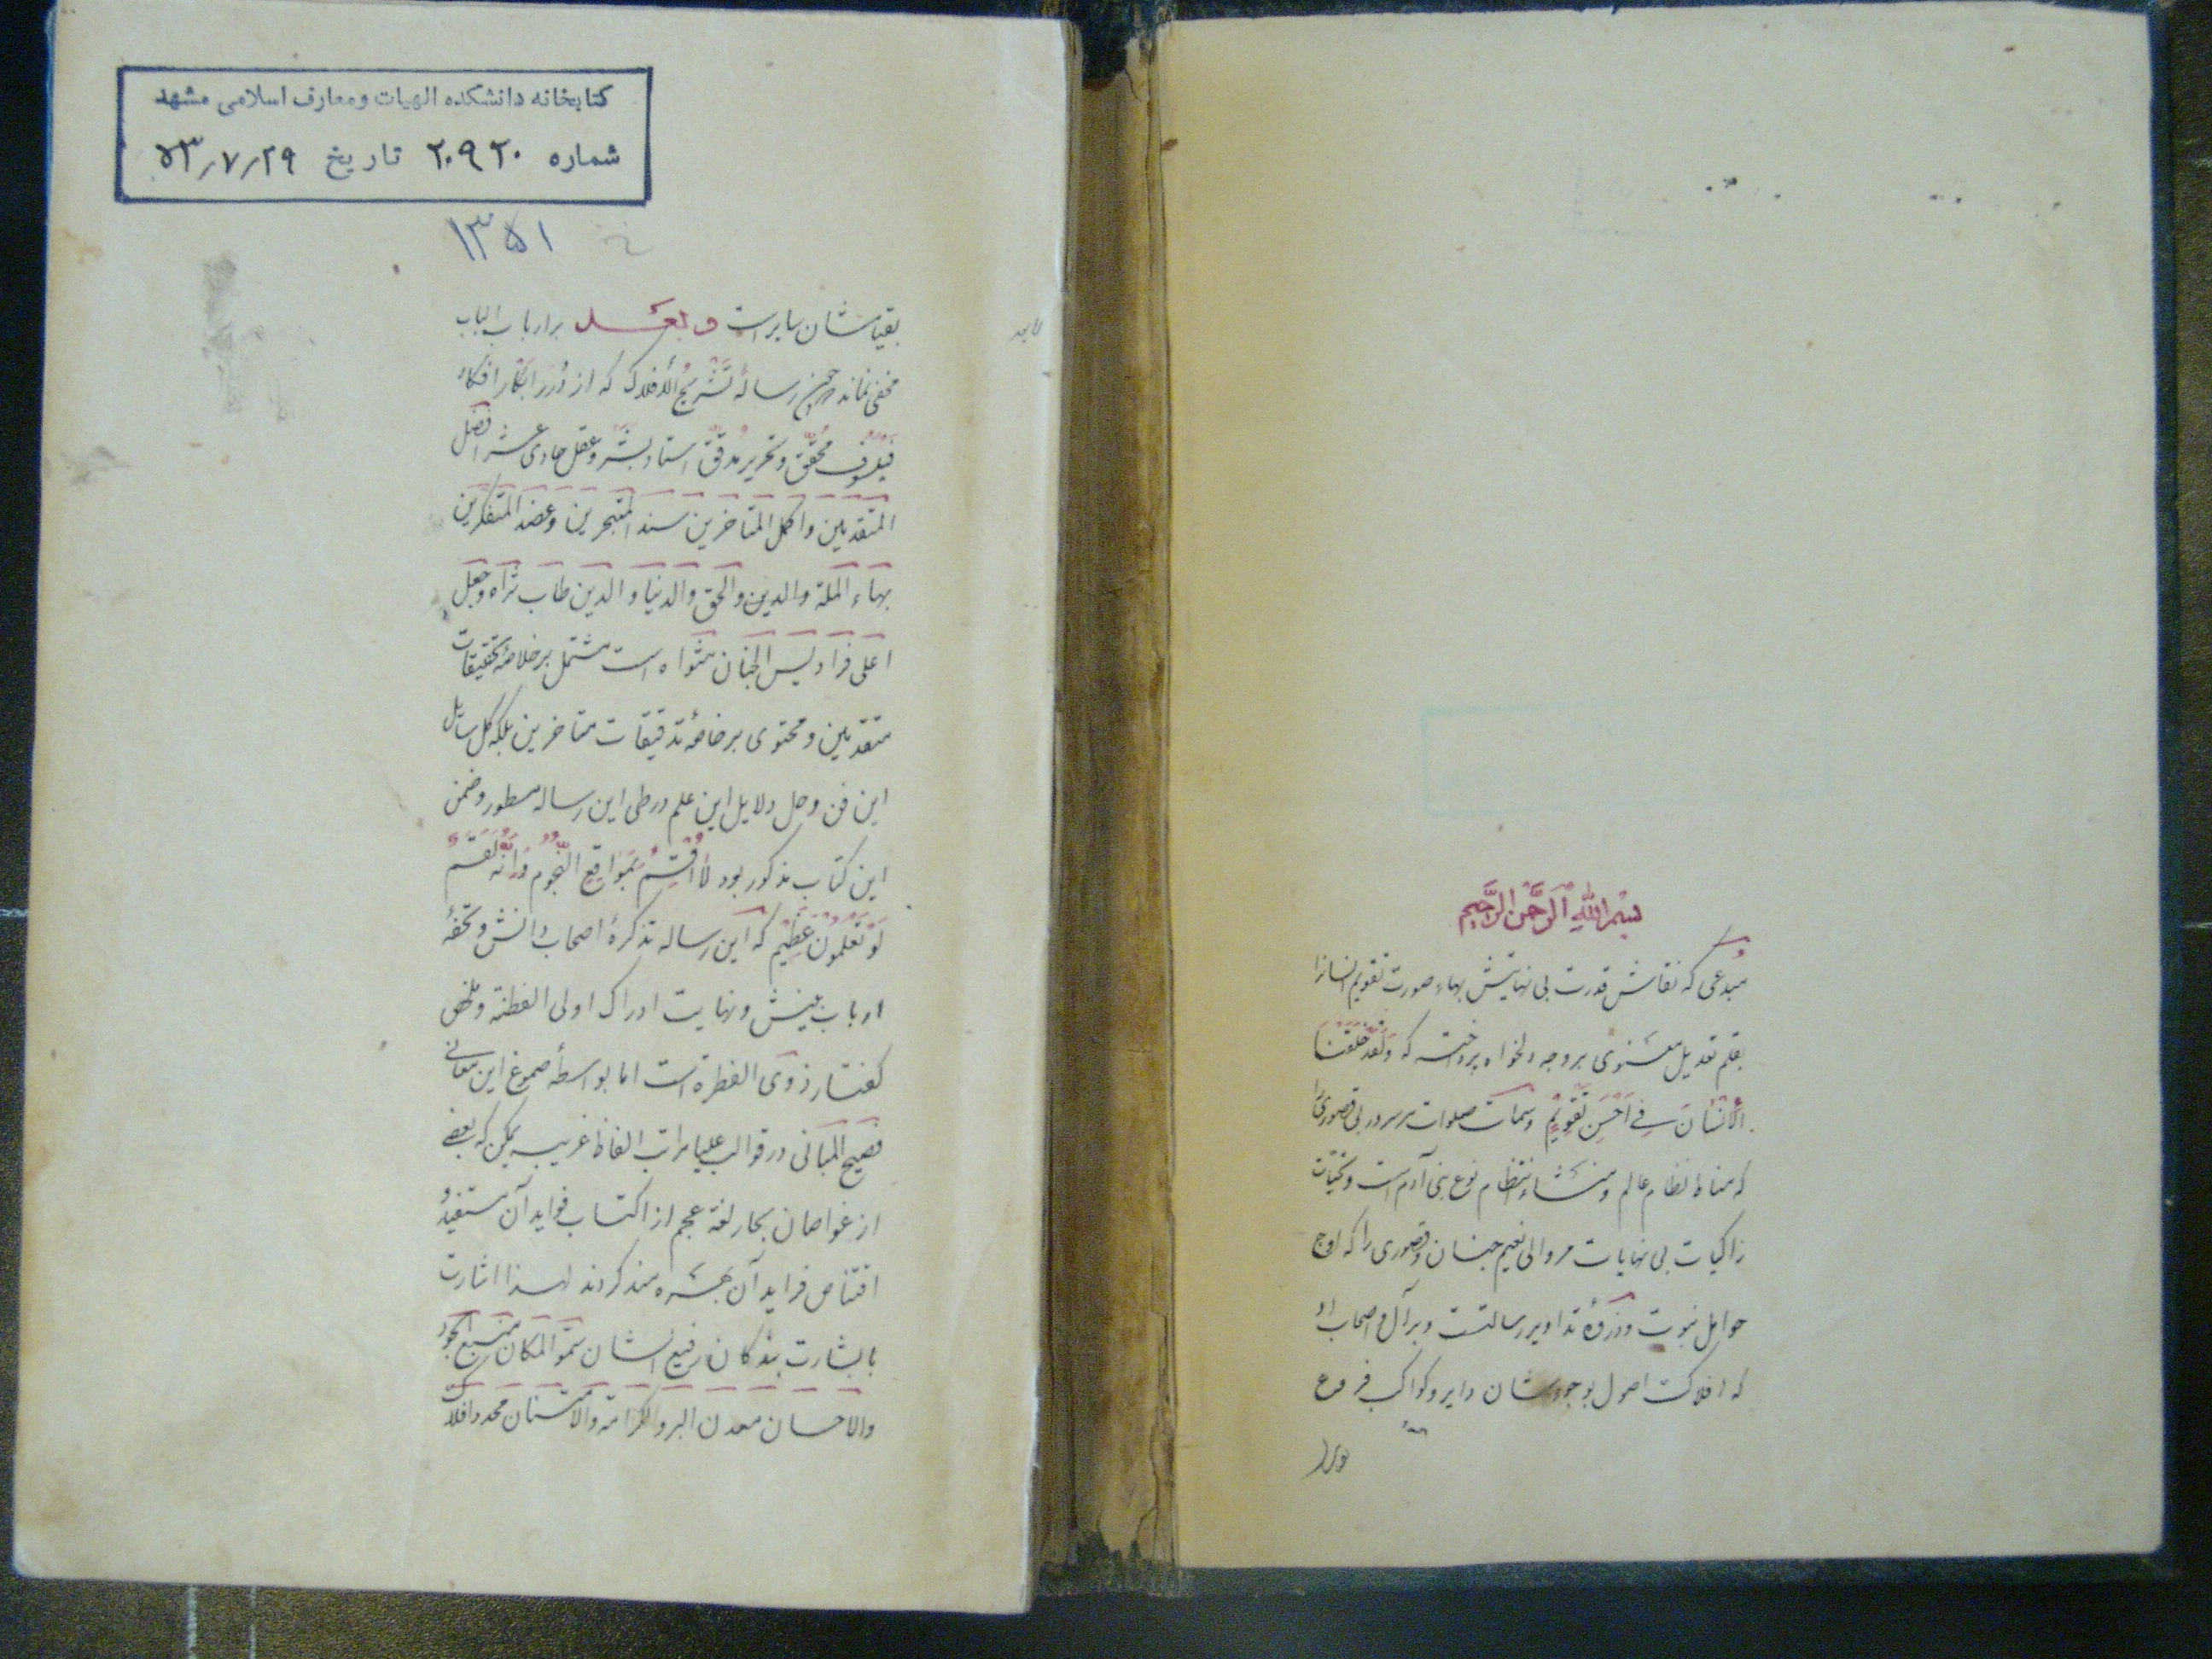 بسم الله الرحمن الرحیم
مبدعی که نقاش قدرت بی نهایتش بهاء صورت تقویم انسانرا
بقلم تعدیل مستوی بروجه دلخواه پرداخته که وَلَقَدْ خَلَقْنَا
الْاِنْسَانَ فِی اَحْسَنِ تَقْوِیمٍ وسمات صلوات مر سرور بی قصوری
که مناط نظام عالم ومنشاء انتظام نوع بنی آدم است وتحیات
زاکیات بی نهایات مر والی نعیم جنان وقصوری را که اوج
حوامل نبوت وذروۀ تداویر رسالتست وبر آل واصحاب او
که افلاکت اصول بوجودشان دایر وکواکب فروع
بقیامشان سایر است وبعد بر ارباب الباب
مخفی نماند چون رسالۀ تَشْرِیحُ الْاَفْلَاک که از دُرَر ابکار افکار
فیلسوف محقق ونحریر مدقق استاد بشر وعقل حادی عشر افضل
المتقدمین واکمل المتاخرین سند المتبحرین وعضد المتفکرین
بهاء الملة والدین والحق والدنیا والدین طاب ثراه وجعل
اعلی فرادیس الجنان مثواه است مشتمل بر خلاصۀ تحقیقات
متقدمین ومحتوی بر خاصۀ تدقیقات متاخرین بلکه کل مسایل
این فن وحل دلایل این علم در طی این رساله مسطور وضمن
این کتاب مذکور بود لَا اُقْسِمُ بِمَوَاقِعِ النُّجُومِ وَاِنَّهُ لَقَسَمٌ
لَوْ تَعْلَمُونَ عَظِیمٌ که این رساله تذکرۀ اصحاب دانش وتحفۀ
ارباب بینش ونهایت ادراک اولی الفطنة وملخص
گفتار ذوی الفطرة است اما بواسطۀ صموغ این معانی
فصیح المبانی در قوالب علیا مراتب الفاظ غریبه یمکن که بعضی
از غواصان بحار لغة عجم از اکتساب فواید آن مستفید و
اقتناص فراید آن بهره مند نکردند لهذا اشارت
با بشارت بندگان رفیع الشان سمو المکان منبع الجود
والاحسان معدن البر والکرامة والامتنان محدد افلاک
کتابخانه دانشکده الهیات ومعارف اسلامی مشهد
شماره ۲۰۹۲۰ تاریخ ۵۳٫۷٫۲۹
۱۳۵۱